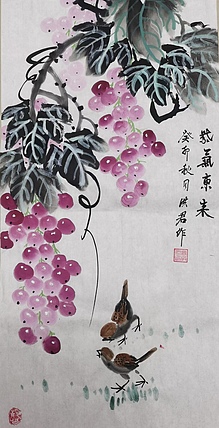 紫氣東来
癸卯秋月洪君作